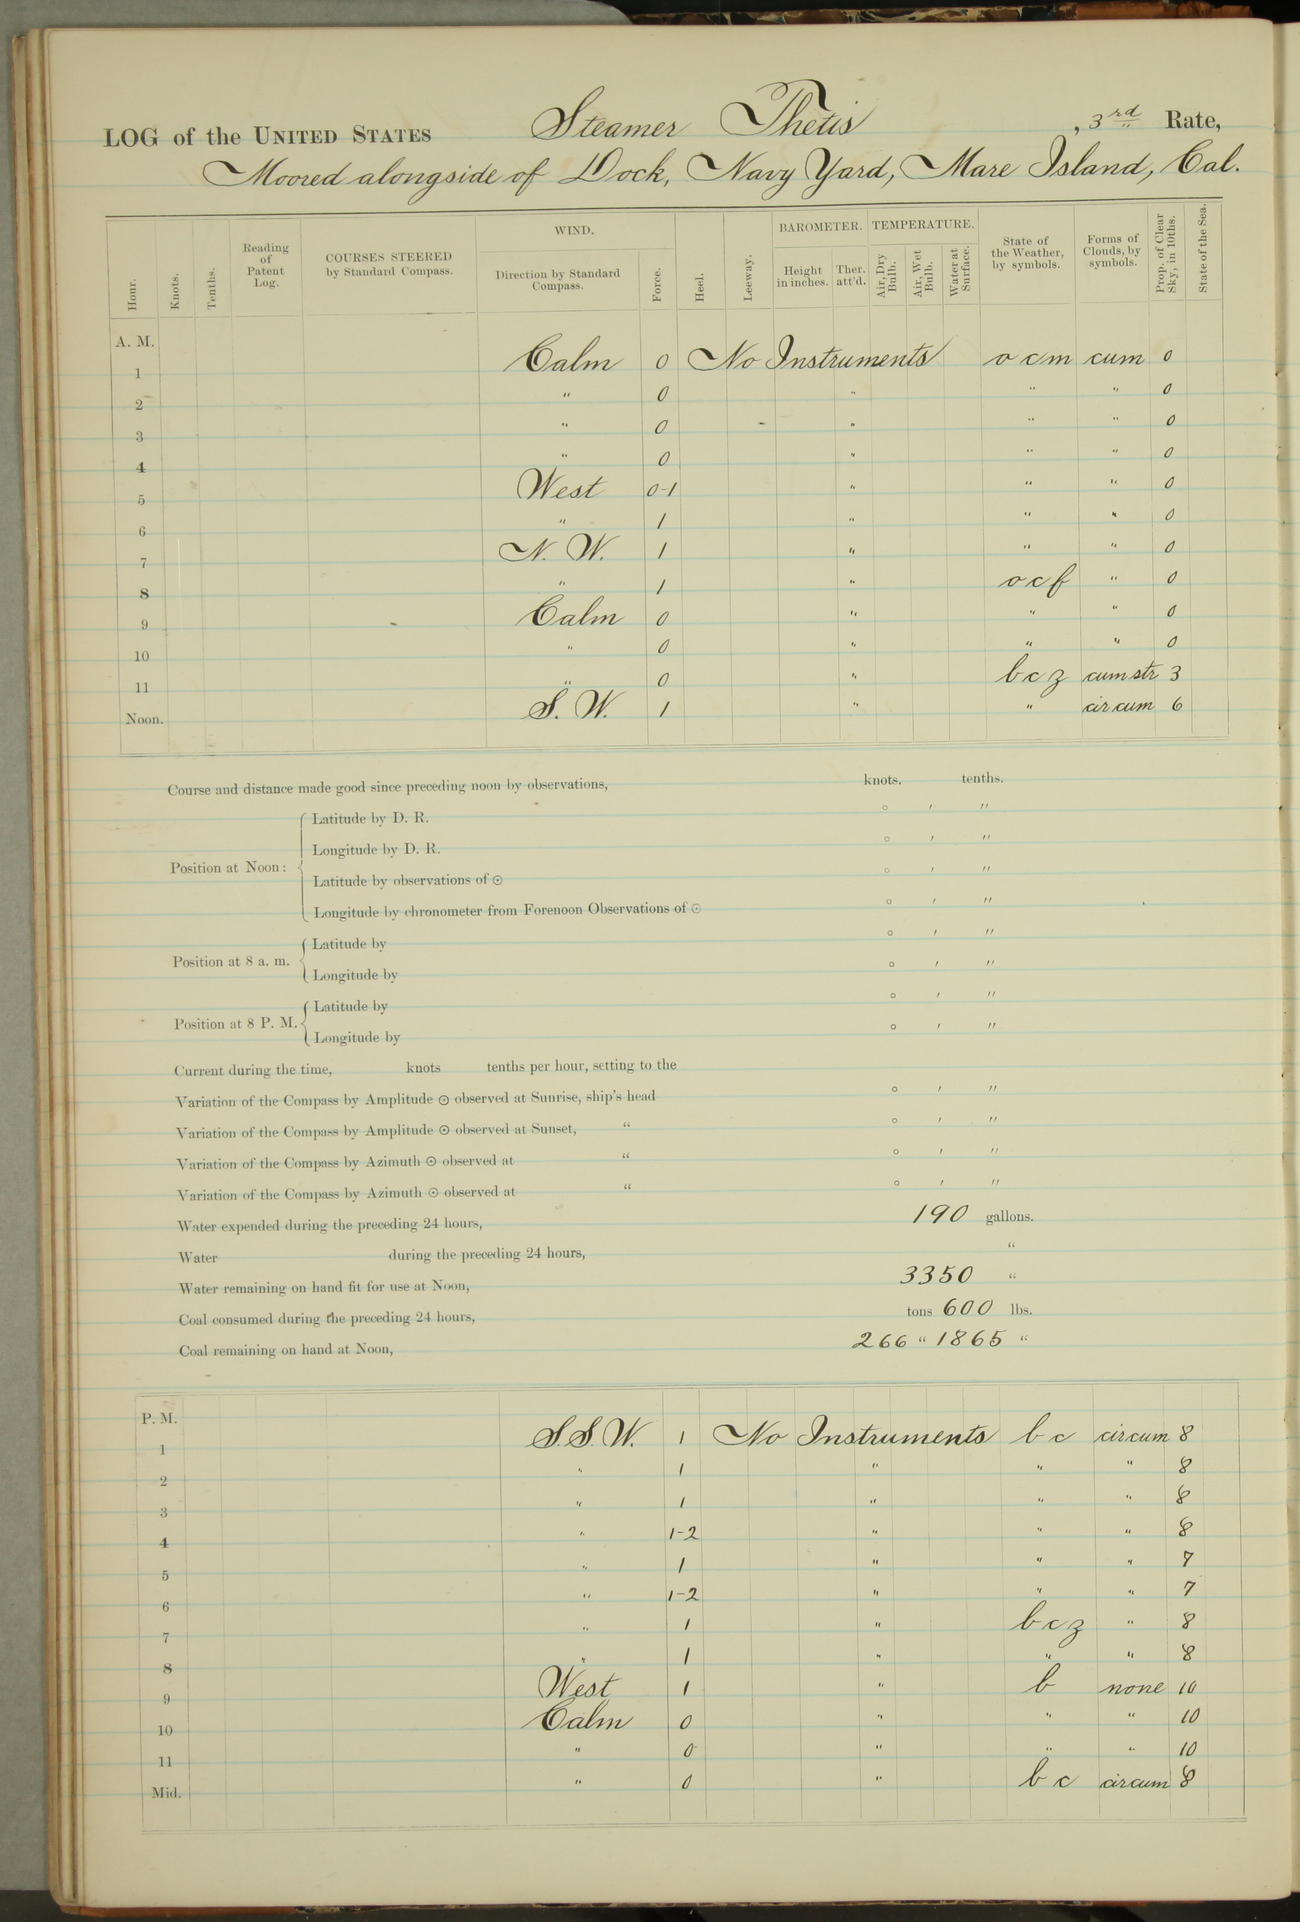 LOG of the UNITED STATES Steamer Thetis, 3rd Rate,
Moored alongside of Dock, Navy Yard, Mare Island, Cal.
Hour. Knots. Tenths. Reading of Patent Log. COURSES STEERED by Standard Compass. WIND. Direction by Standard Compass. Force. Heel. Leeway. BAROMETER. Height in inches. Ther. att'd. TEMPERATURE. Air, Dry Bulb. Air, Wet Bulb. Water at Surface. State of the Weather, by symbols. Forms of Clouds, by symbols. Prop. of Clear Sky, in 10ths. State of the Sea.
A. M.
1 Calm 0 No Instruments o c m cum 0
2 " 0 " " " 0
3 " 0 " " " 0
4 " 0 " " " 0
5 West 0-1 " " " 0
6 " 1 " " " 0
7 N. W. 1 " " " 0
8 " 1 " o c f " 0
9 Calm 0 " " " 0
10 " 0 " " " 0
11 " 0 " b c z cum str 3
Noon. S. W. 1 " " cir cum 6
Course and distance made good since preceding noon by observations, knots. tenths.
Position at Noon: Latitude by D. R. ° ′ ″
Longitude by D. R. ° ′ ″
Latitude by observations of ☉ ° ′ ″
Longitude by chronometer from Forenoon Observations of ☉ ° ′ ″
Position at 8 a. m. Latitude by ° ′ ″
Longitude by ° ′ ″
Position at 8 P. M. Latitude by ° ′ ″
Longitude by ° ′ ″
Current during the time, knots tenths per hour, setting to the
Variation of the Compass by Amplitude ☉ observed at Sunrise, ship's head ° ′ ″
Variation of the Compass by Amplitude ☉ observed at Sunset, " ° ′ ″
Variation of the Compass by Azimuth ☉ observed at " ° ′ ″
Variation of the Compass by Azimuth ☉ observed at " ° ′ ″
Water expended during the preceding 24 hours, 190 gallons.
Water during the preceding 24 hours, "
Water remaining on hand fit for use at Noon, 3350 "
Coal consumed during the preceding 24 hours, tons 600 lbs.
Coal remaining on hand at Noon, 266 " 1865 "
P. M.
1 S.S.W. 1 No Instruments b c cir cum 8
2 " 1 " " " 8
3 " 1 " " " 8
4 " 1-2 " " " 8
5 " 1 " " " 7
6 " 1-2 " " " 7
7 " 1 " b c z " 8
8 " 1 " " " 8
9 West 1 " b none 10
10 Calm 0 " " " 10
11 " 0 " " " 10
Mid. " 0 " b c cir cum 8